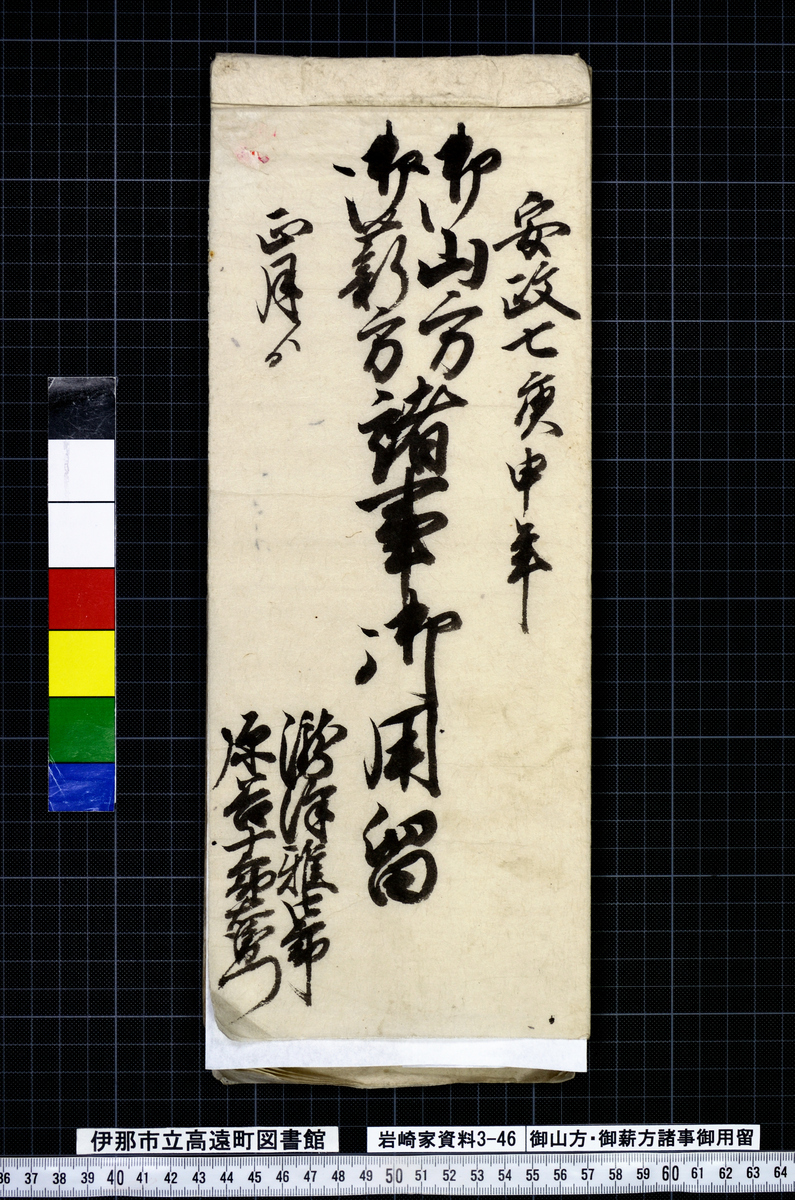 安政七庚申年
御山方
御薪方
諸事御用留
正月ゟ
瀧澤雅七郎
原
伊那市立高遠町図書館
岩崎家資料3-46
御山方・御薪方諸事御用留
36 37 38 39 40 41 42 43 44 45 46 47 48 49 50 51 52 53 54 55 56 57 58 59 60 61 62 63 64